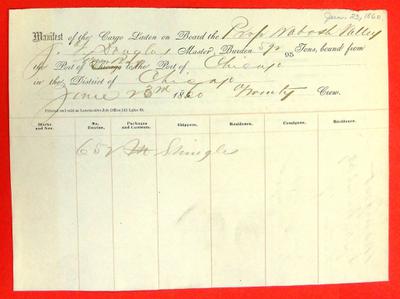 Jan. 23, 1860
Manifest of the Cargo Laden on Board the Prop Wabash Valley
Douglas Master, Burden 592 95 Tons, bound from
the Port of Chicago to the Port of Chicago
in the District of Chicago
June 23rd 1860 Twenty Crew.
Printed and sold at Locomotive Job Office 145 Lake St.
Marks and Nos. No. Entries. Packages and Contents. Shippers. Residence. Consignee. Residence.
65 M Shingles